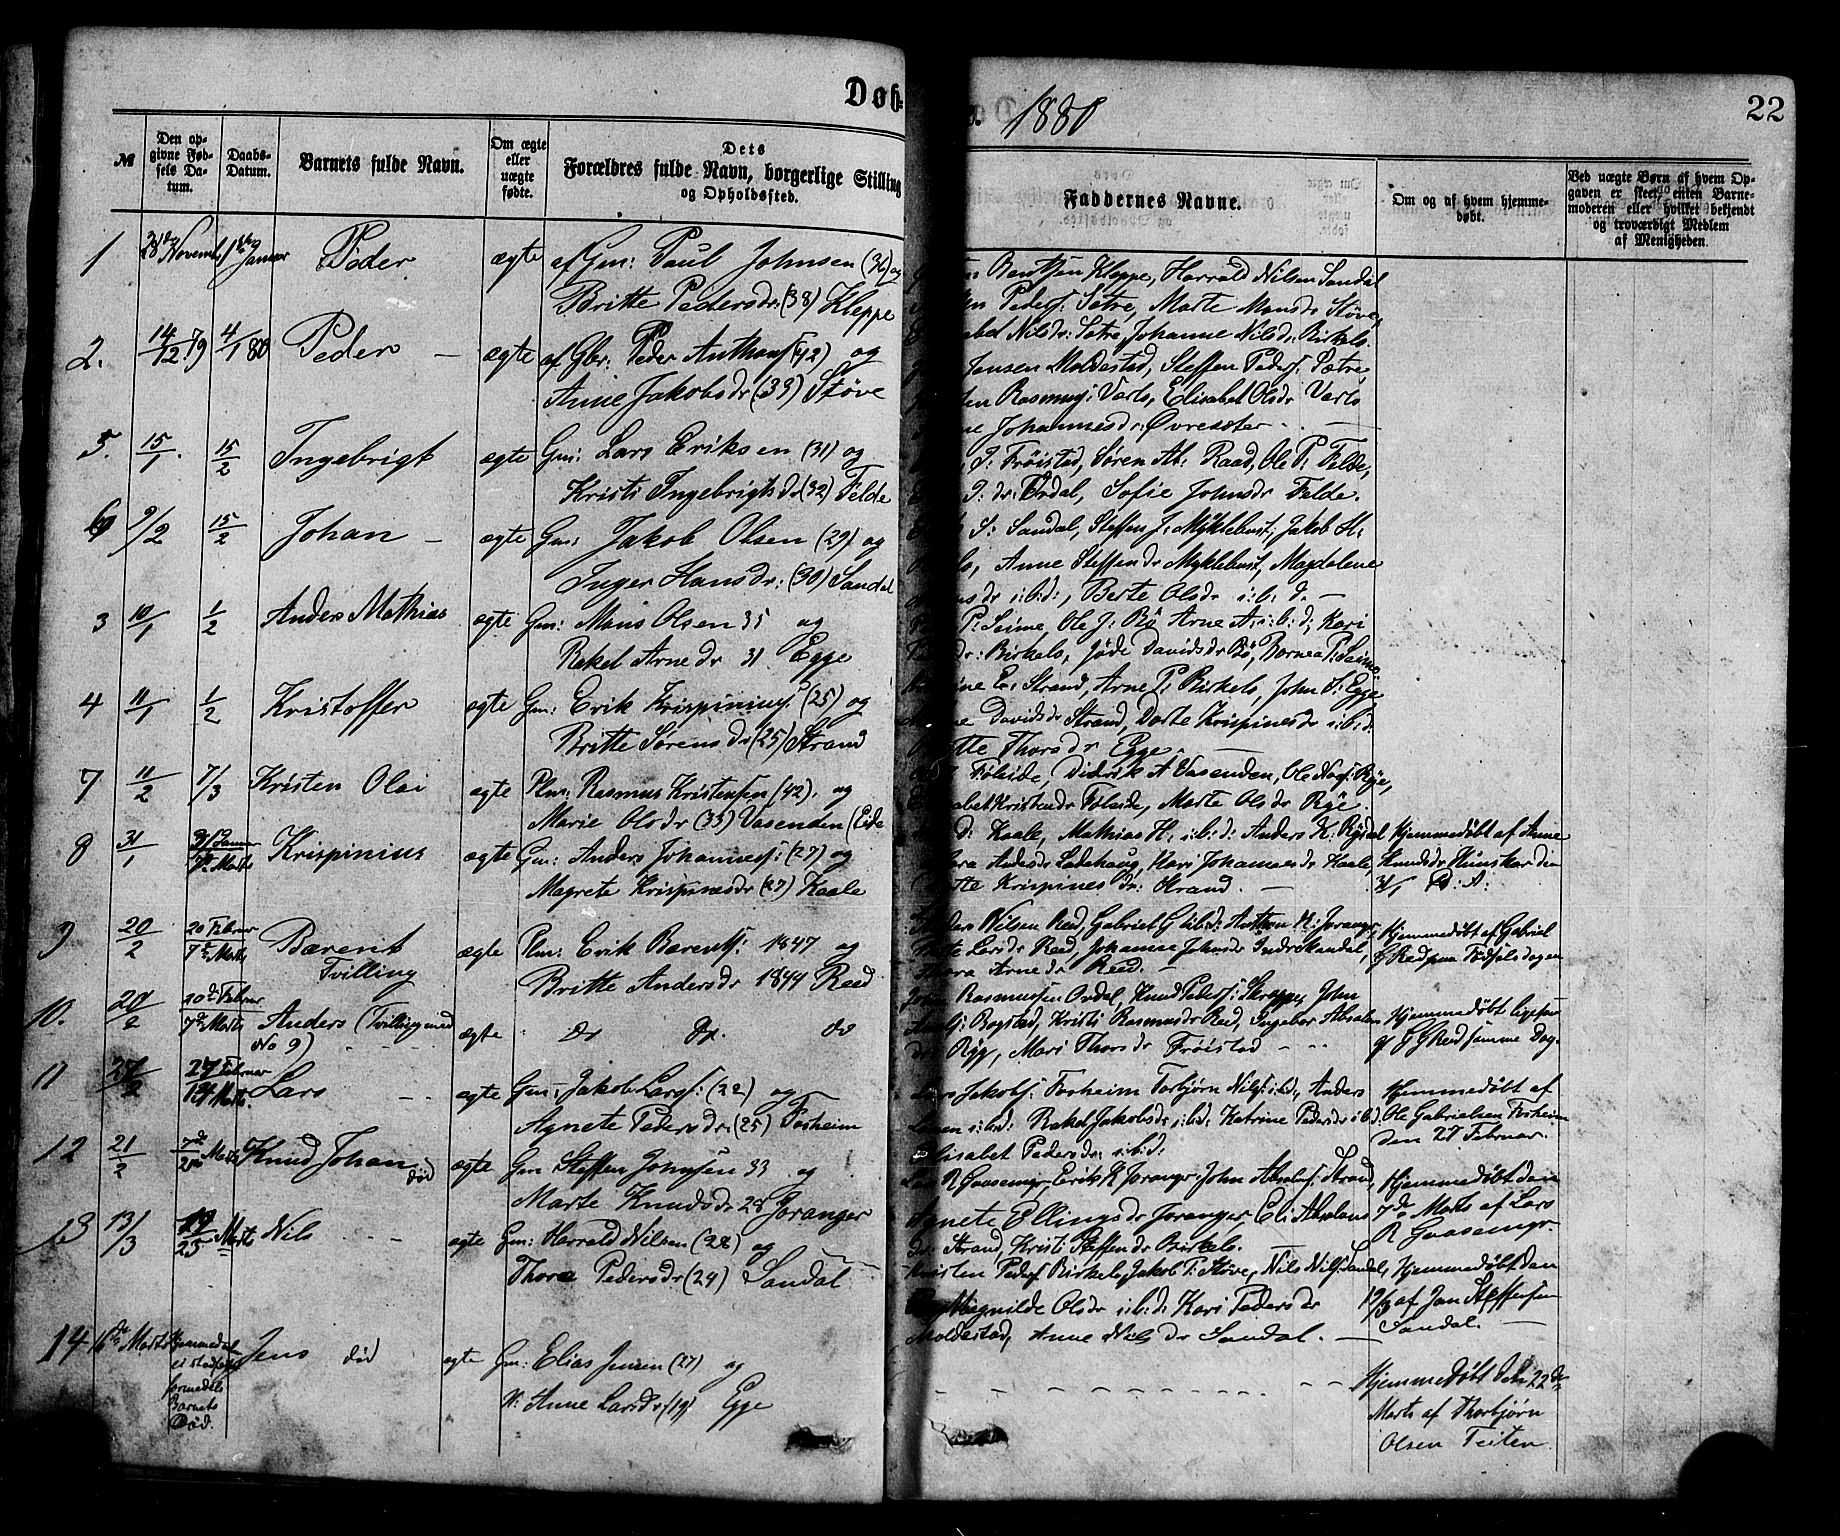 Døb-
1880
22
№
Den op-
givne Fød-
sels Da-
tum.
Daabs-
Datum.
Barnets fulde Navn.
Om ægte
eller
uægte
fødte.
Dets
Forældres fulde Navn, borgerlige Stilling
og Opholdssted.
Faddernes Navne.
Om og af hvem hjemme-
døbt.
Ved uægte Børn af hvem Op-
gaven er skeet, enten Barne-
moderen eller hvilket bekjendt
og troværdigt Medlem
af Menigheden.
1 Novemb. 1 Januar Peder ægte af Gm: Paul Johnsen (36) og
Britte Pedersdr. (38) Kleppe
Kleppe, Harrald Nilsen Sandal
Peders. Sætre, Marte Monsdr Støve,
Nilsdr: Sætre, Johanne Nilsd: Birkelo.
2. 14/12 79 4/1 80 Peder – ægte af Gbr: Peder Anthons (42) og
Anne Jakobsdr (33) Støve
Jansen Moldestad, Steffen Peders. Sætre,
Rasmus: Varlo, Elisabet Olsdr Varlo
Johannesdr: Øvresæter – . –
5. 15/1. 15/2 Ingebrigt ægte Gm: Lars Eriksen (31) og
Kristi Ingebrigtsdr (32) Felde
P: Frøistad, Søren Ab: Raad, Ole P: Felde,
P: dr: Ordal, Sofie Johnsdr Felde.
6 9/2 15/2 Johan – ægte Gm: Jakob Olsen (29) og
Inger Hansdr: (30) Sandal
S: Sandal, Steffen J: Myklebust, Jakob H.
Anne Steffensdr Myklebust, Magdalene
i:b:d:, Berte Olsdr i:b:d. –
3 10/1 1/2 Anders Mathias ægte Gm: Mons Olsen 35 og
Rakel Arnedr 31 Egge
P: Seime, Ole J: Rø Arne A: i:b:d; Kari
dr: Birkelo, Jøde Davidsdr Bø, Bornea P: Seime
4 11/1 1/2 Kristoffer ægte Gm: Erik Krispinius. (25) og
Britte Sørensdr (25) Strand
E: Strand, Arne P: Birkelo, John S: Egge,
Davidsdr Strand, Dorte Krispinesdr i:b:d.
Thorsdr Egge. –
7 11/2 7/3 Kristen Olai ægte Plm: Rasmus Kristensen (42). og
Marie Olsdr (35) Vasenden (Eide
Føleide, Didrik A Vasenden, Ole Rye,
Kristensdr Føleide, Marte Olsdr Rye.
8 31/1 31 Januar 7de Marts Krispinius ægte Gm: Anders Johanness: (27) og
Magrete Krispinesdr (27) Kaale
Kaale, Mathias H. i:b:d: Anders K: Rysdal
Andersdr Ladehaug, Kari Johannesdr Kaale,
Krispinesdr: Strand. –
Hjemmedøbt af Anne
Knudsdr den
31/1
9 20/2 20 Februar 7de Marts Bærent
Tvilling ægte Plm: Erik Barents: 1847 og
Britte Andersdr 1844 Reed
Nilsen Reed, Gabriel G i:b:d: Anthon H: Joranger,
Larsdr Reed, Johanne Johnsdr Indrekandal,
Thora Arnedr Reed. –
Hjemmedøbt af Gabriel
G Reed paa Fødselsdagen
10. 20/2 20de Februar 7de Marts Anders (Tvilling med
No 9) ægte do do. do
Rasmussen Ordal, Knud Peders: Skreppe, John
Bogstad, Kristi Rasmusdr Reed, Ingebor Absalons
dr Ryg, Mari Thorsdr Frøistad – – .
Hjemmedøbt
af G G Reed samme Dag.
11 27/2 27 Februar Marts. Lars ægte Gm: Jakob Lars: (22) og
Agnete Pedersdr (25) Forheim
Jakobs: Forheim Torbjørn Nils: i:b:d, Anders
i:b:d: Rakel Jakobsdr i:b:d: Katrine Pedersdr i:b:d.
Elisabet Pedersdr: i:b:d:
Hjemmedøbt af
Ole Gabrielsen Forheim
den 27 Februar.
12 21/2 Marts Knud Johan
død ægte Gm Steffen Johnsen 33 og
Marte Knudsdr 28 Joranger
Lars R Gaasemyr, Erik R Joranger, John Absalons: Strand,
Agnete Ellingsdr Joranger, Eli Absalons
dr Strand, Kristi Steffensdr Birkelo.
Hjemmedøbt den
7de Marts af Lars
R Gaasemyr.
13 13/3 19/25 Marts Nils ægte Gm: Harrald Nilsen (28) og
Thora Pedersdr (24) Sandal
Kristen Peders: Birkelo, Jakob P: Støve, Nils Nils: Sandal,
Olsdr i:b:d: Kari Pedersdr
Moldestad, Anne Nilsdr Sandal. –
Hjemmedøbt den
19/3 af Jan Steffensen
Sandal.
14 16de Marts Hjemmedøbt
formedelst
Barnets
Død. Jens død ægte Gm: Elias Jensen (27) og
H: Anne Larsdr (19) Egge
Hjemmedøbt den 22de
Marts af Thorbjørn
Olsen Teiten.